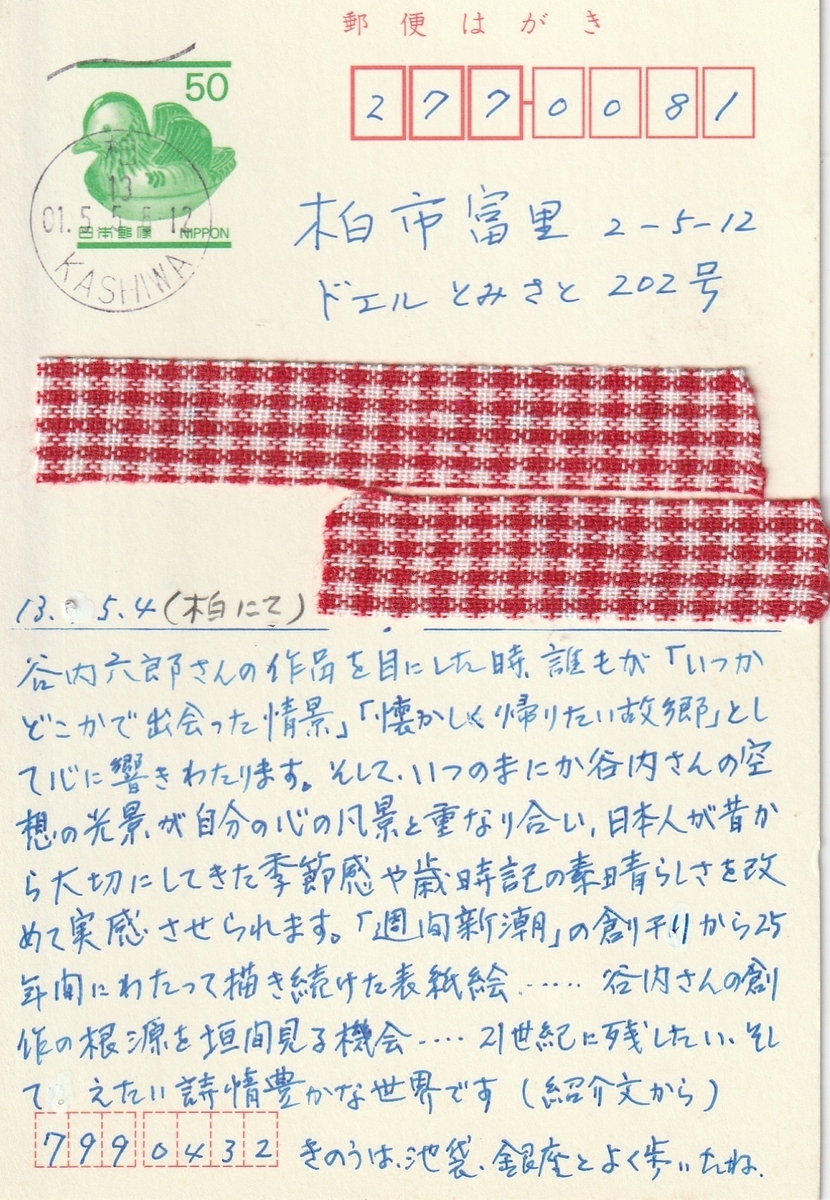 郵便はがき
50
日本郵便 NIPPON
柏
13
01.5.5.8-12
KASHIWA
277-0081
柏市富里2-5-12
ドエルとみさと202号
13. 5.4(柏にて)
谷内六郎さんの作品を目にした時、誰もが「いつか
どこかで出会った情景」「懐かしく帰りたい故郷」とし
て心に響きわたります。そして、いつのまにか谷内さんの空
想の光景が自分の心の風景と重なり合い、日本人が昔か
ら大切にしてきた季節感や歳時記の素晴らしさを改
めて実感させられます。「週間新潮」の創刊から25
年間にわたって描き続けた表紙絵……谷内さんの創
作の根源を垣間見る機会….21世紀に残したい、そし
て えたい詩情豊かな世界です(紹介文から)
7990432
きのうは、池袋、銀座とよく歩いたね.